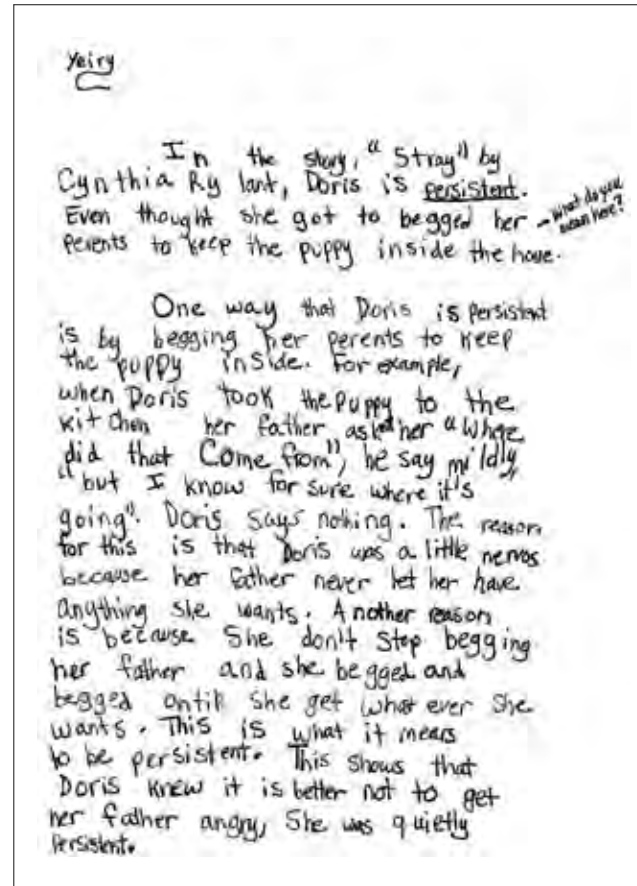 Yeiry
In the story, "Stray" by
Cynthia Ry lant, Doris is persistent.
Even thought she got to begged her → what do you mean here?
perents to keep the puppy inside the house.
One way that Doris is persistent
is by begging her perents to keep
the puppy inside. For example,
when Doris took the puppy to the
kitchen her father asked her "Whge
did that Come from", he say mildly,
"but I know for sure where it's
going". Doris says nothing. The reason
for this is that Doris was a little nervos
because her father never let her have
anything she wants. Another reason
is because She don't stop begging
her father and she begged and
begged ontill she get what ever she
wants. This is what it means
to be persistent. This shows that
Doris knew it is better not to get
her father angry, She was quietly
persistent.